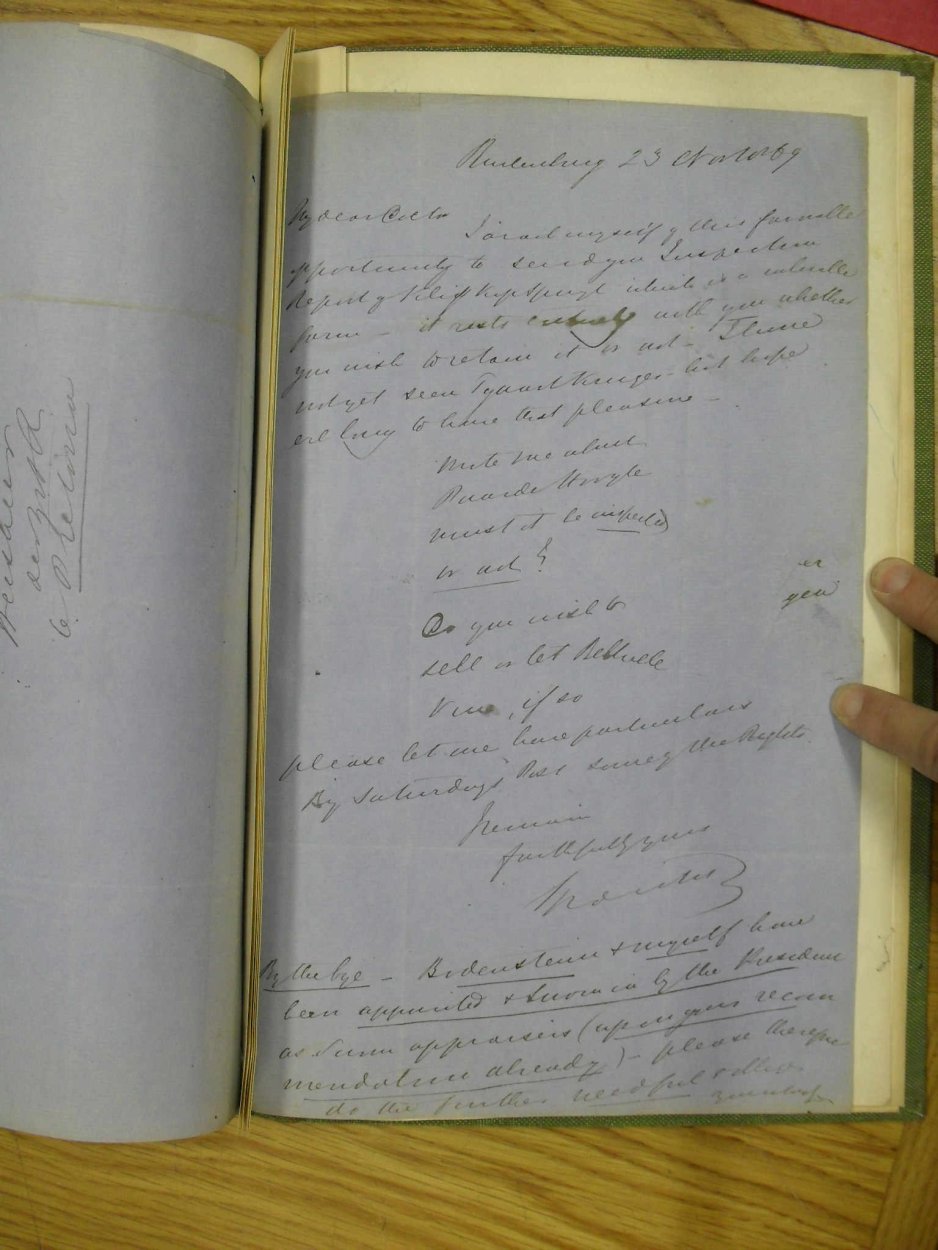 Rustenburg 23 Novbr 69
My dear Coctr
I avail myself of this favorable
opportunity to send you Inspection
Report of Klip Kop Spruyt which is a valuable
farm – it rests entirely with you whether
you wish to retain it or not – I have
not yet seen Tjaart Kruger – but hope
ere long to have that pleasure –
Write me about
Paarde
must it be inspected
or not ?
Do you wish to
sell or let
if so
er
you
please let me have particulars
By Saturdays Post survey the Rights
I remain
faithfully yours
By the bye – Bodenstein & myself have
been appointed & sworn in by the President
as appraisers (upon your recom
mendation already) – please therefore
do the further needful & oblige
yours
Pretoria